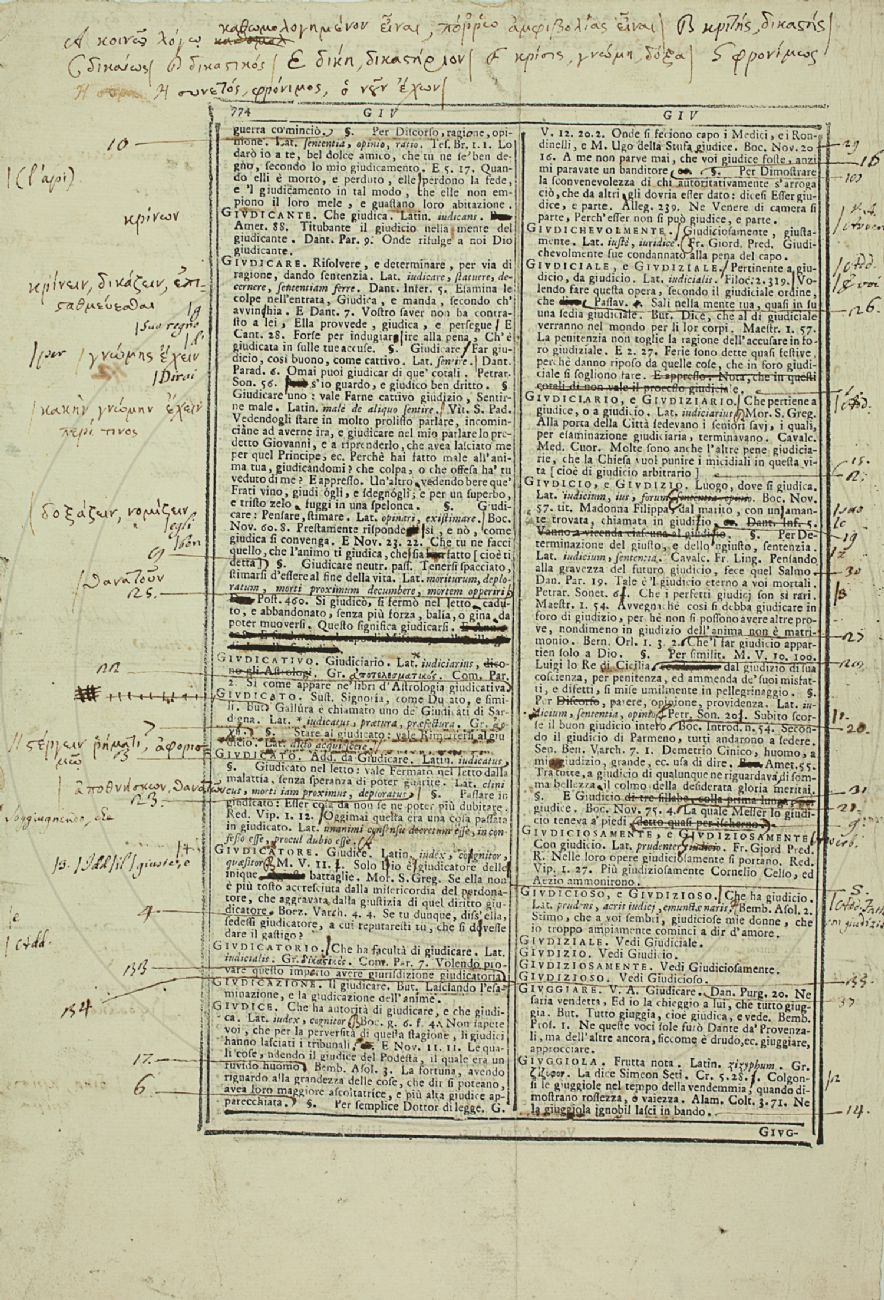 774 GIV GIV
guerra cominciò. §. Per Discorso, ragione, opi-
nione. Lat. sententia, opinio, ratio. Tes. Br. 1. 1. Lo
darò io a te, bel dolce amico, che tu ne se' ben de-
gno, secondo lo mio giudicamento. E 5. 17. Quan-
do elli è morto, e perduto, elle perdono la fede,
e 'l giudicamento in tal modo, che elle non em-
piono il loro mele, e guastano loro abitazione.
GIVDICANTE. Che giudica. Latin. iudicans.
Amet. 88. Titubante il giudicio nella mente del
giudicante. Dant. Par. 9. Onde rifulge a noi Dio
giudicante.
GIVDICARE. Risolvere, e determinare, per via di
ragione, dando sentenzia. Lat. iudicare, statuere, de-
cernere, sententiam ferre. Dant. Infer. 5. Esamina le
colpe nell'entrata, Giudica, e manda, secondo ch'
avvinghia. E Dant. 7. Vostro saver non ha contra-
sto a lei, Ella provvede, giudica, e persegue E
Cant. 28. Forse per indugiare ire alla pena, Ch'è
giudicata in sulle tue accuse. §. Giudicare Far giu-
dicio, così buono, come cattivo. Lat. sentire. Dant.
Parad. 6. Omai puoi giudicar di que' cotali. Petrar.
Son. 56. s'io guardo, e giudico ben dritto. §
Giudicare uno: vale Farne cattivo giudizio, Sentir-
ne male. Latin. male de aliquo sentire. Vit. S. Pad.
Vedendogli stare in molto prolisso parlare, incomin-
ciane ad averne ira, e giudicare nel mio parlare lo pre-
detto Giovanni, e a riprenderlo, che avea lasciato me
per quel Principe, ec. Perchè hai fatto male all'ani-
ma tua, giudicandomi? che colpa, o che offesa ha' tu
veduto di me? E appresso. Un'altro vedendo bere que'
Frati vino, giudicògli, e sdegnògli, e per un superbo,
e tristo zelo fuggì in una spelonca. §. Giudi-
care: Pensare, stimare. Lat. opinari, existimare. Boc.
Nov. 60. 8. Prestamente risponde sì, e nò, come
giudica si convenga. E Nov. 23. 22. Che tu ne facci
quello, che l'animo ti giudica, che sia ben fatto [cioè ti
detta] §. Giudicare neutr. pass. Tenersi spacciato,
stimarsi d'essere al fine della vita. Lat. moriturum, deplo-
ratum, morti proximum decumbere, mortem opperiri
Post. 460. Si giudicò, si fermò nel letto cadu-
to, e abbandonato, senza più forza, balìa, o gina da
poter muoversi. Questo significa giudicarsi.
GIVDICATIVO. Giudiciario. Lat. iudiciarius,
Gr. ἀποτελεσματικός. Com. Par.
2. Sì come appare ne' libri d'Astrologia giudicativa
GIVDICATO. Sust. Signoria, come Ducato, e simi-
li. But. Gallura è chiamato uno de' Giudicati di Sar-
digna. Lat. * iudicatus, prætura, præfectura.
§. Stare al giudicato: vale Rimettersi al giu-
dicio. Lat. dicto acquiescere.
GIVDICATO. Add. da Giudicare. Latin. iudicatus.
§. Giudicato nel letto: vale Fermato nel letto dalla
malattia, senza speranza di poter guarire. Lat. clini-
cus, morti iam proximus, deploratus §. Passare in
giudicato: Esser cosa da non se ne poter più dubitare.
Red. Vip. 1. 12. Oggimai questa era una cosa passata
in giudicato. Lat. unanimi consensu decretum esse, in con-
fesso esse, procul dubio esse.
GIVDICATORE. Giudice. Latin. iudex, cognitor,
quæsitor. M. V. 11. 1. Solo Iddio è giudicatore delle
inique battaglie. Mor. S. Greg. Se ella non
è più tosto accresciuta dalla misericordia del perdona-
tore, che aggravata dalla giustizia di quel diritto giu-
dicatore. Boez. Varch. 4. 4. Se tu dunque, diss'ella,
sedessi giudicatore, a cui reputaresti tu, che si dovesse
dare il gastigo?
GIVDICATORIO. Che ha facultà di giudicare. Lat.
iudicialis. Gr. δικαστικός. Com. Par. 7. Volendo pro-
vare questo imperio avere giurisdizione giudicatoria
GIVDICAZIONE. Il giudicare. But. Lasciando l'esa-
minazione, e la giudicazione dell'anime.
GIVDICE. Che ha autorità di giudicare, e che giudi-
ca. Lat. iudex, cognitor. Boc. g. 6. f. 4. Non sapete
voi, che per la perversità di questa stagione, li giudici
hanno lasciati i tribunali. E Nov. 11. 11. Le qua-
li cose, udendo il giudice del Podestà, il quale era un
ruvido huomo. Bemb. Asol. 3. La fortuna, avendo
riguardo alla grandezza delle cose, che dir si poteano,
avea loro maggiore ascoltatrice, e più alta giudice ap-
parecchiata. §. Per semplice Dottor di legge. G.
V. 12. 20. 2. Onde si feciono capo i Medici, e i Ron-
dinelli, e M. Ugo della Stufa giudice. Boc. Nov. 20
16. A me non parve mai, che voi giudice foste, anzi
mi paravate un banditore §. Per Dimostrare
la sconvenevolezza di chi autoritativamente s'arroga
ciò, che da altri gli dovria esser dato: dicesi Esser giu-
dice, e parte. Alleg. 239. Ne Venere di camera si
parte, Perch'esser non si può giudice, e parte.
GIVDICHEVOLMENTE. Giudiciosamente, giusta-
mente. Lat. iustè, iuridicè. Fr. Giord. Pred. Giudi-
chevolmente fue condannato alla pena del capo.
GIVDICIALE, e GIVDIZIALE. Pertinente a giu-
dicio, da giudicio. Lat. iudicialis. Filoc. 2. 319. Vo-
lendo fare questa opera, secondo il giudiciale ordine,
che Passav. Sali nella mente tua, quasi in su
una sedia giudiciale. But. Dice, che al dì giudiciale
verranno nel mondo per li lor corpi. Maestr. 1. 57.
La penitenzia non toglie la ragione dell'accusare in fo-
ro giudiziale. E 2. 27. Ferie sono dette quasi festive,
perchè danno riposo da quelle cose, che in foro giudi-
ciale si sogliono fare. E appresso. Nota, che in questi
cotali dì non vale il processo giudiciale.
GIVDICIARIO, e GIVDIZIARIO. Che pertiene a
giudice, o a giudicio. Lat. iudiciarius. Mor. S. Greg.
Alla porta della Città sedevano i seniori savj, i quali,
per esaminazione giudiciaria, terminavano. Cavalc.
Med. Cuor. Molte sono anche l'altre pene giudiciá-
rie, che la Chiesa vuol punire i micidiali in questa vi-
ta [cioè di giudicio arbitrario]
GIVDICIO, e GIVDIZIO. Luogo, dove si giudica.
Lat. iudicium, ius, forum, sententia, opinio. Boc. Nov.
57. tit. Madonna Filippa dal marito, con un'aman-
te trovata, chiamata in giudizio, ec. Dant. Inf. 5.
Vanno a vicenda ciascuna al giudizio. §. Per De-
terminazione del giusto, e dello 'ngiusto, sentenzia.
Lat. iudicium, sententia. Cavalc. Fr. Ling. Pensando
alla gravezza del futuro giudicio, fece quel Salmo.
Dan. Par. 19. Tale è 'l giudicio eterno a voi mortali.
Petrar. Sonet. 6. Che i perfetti giudicj son sì rari.
Maestr. 1. 54. Avvegnachè così si debba giudicare in
foro di giudizio, perchè non si possono avere altre pro-
ve, nondimeno in giudizio dell'anima non è matri-
monio. Bern. Orl. 1. 3. 2. Che 'l far giudicio appar-
tien solo a Dio. §. Per similit. M. V. 10. 100.
Luigi lo Re di Cicilia dal giudizio di sua
coscienza, per penitenza, ed ammenda de' suoi misfat-
ti, e difetti, si mise umilmente in pellegrinaggio. §.
Per Discorso, parere, opinione, providenza. Lat. iu-
dicium, sententia, opinio. Petr. Son. 20. Subito scor-
se il buon giudicio intero Boc. Introd. n. 54. Secon-
do il giudicio di Parmeno, tutti andarono a sedere.
Sen. Ben. Varch. 7. 1. Demetrio Cinico, huomo, a
mio giudizio, grande, ec. usa di dire, Amet. 55.
Tratatte, a giudicio di qualunque ne riguardava, di som-
ma bellezza, il colmo della desiderata gloria meritai.
§. E Giudicio di tre sillabe, colla prima lunga, per
giudice. Boc. Nov. 75. 4. La quale Messer lo giudi-
cio teneva a' piedi (detto quasi per ischerno)
GIVDICIOSAMENTE, e GIVDIZIOSAMENTE
Con giudicio. Lat. prudenter, iudicio. Fr. Giord. Pred.
R. Nelle loro opere giudiciosamente si portano. Red.
Vip. 1. 27. Più giudiziosamente Cornelio Celso, ed
Aezio ammonirono.
GIVDICIOSO, e GIVDIZIOSO. Che ha giudicio.
Lat. prudens, acris iudicj, emunctæ naris. Bemb. Asol. 2.
Stimo, che a voi sembri, giudiciose mie donne, che
io troppo ampiamente cominci a dir d'amore.
GIVDIZIALE. Vedi Giudiciale.
GIVDIZIO. Vedi Giudicio.
GIVDIZIOSAMENTE. Vedi Giudiciosamente.
GIVDIZIOSO. Vedi Giudicioso.
GIVGGIARE. V. A. Giudicare. Dan. Purg. 20. Ne
saria vendetta, Ed io la chieggio a lui, che tutto giug-
gia. But. Tutto giuggia, cioè giudica, e vede. Bemb.
Pros. 1. Ne queste voci sole furò Dante da' Provenza-
li, ma dell'altre ancora, siccome è drudo, ec. giuggiare,
approcciare.
GIVGGIOLA. Frutta nota. Latin. zizyphum. Gr.
ζίζυφον. La dice Simeon Seti. Cr. 5. 28. Colgon-
si le giuggiole nel tempo della vendemmia, quando di-
mostrano rossezza, o vaiezza. Alam. Colt. 3. 71. Ne
la giuggiola ignobil lasci in bando.
GIVG-
A κοινῷ λόγῳ καθωμολογημένον εἶναι, πόῤῥω ἀμφιβολίας εἶναι B κριτής, δικαστής
C δικαίως D δικαστικός E δίκη, δικαστήριον F κρίσις, γνώμη, δόξα G φρονίμως
H συνετός, φρόνιμος, ὁ νοῦν ἔχων
10
(l'api)
κρίνων
κρίνειν, δικάζειν, ἐπι-
σταθμεύεσθαι
γνώμης ἔχειν
κακὴν γνώμην ἔχειν
περί τινος
δοξάζειν, νομίζειν
9
θανατοῦν
25.
22
στέργειν ῥήματι, ἀφορισ-
μῷ
ἀποθνήσκων
23.
4
Add.
133
134
17.
6
29
16
26
15.
12.
19
30
27
20.
31
5.
135
37
12
14.